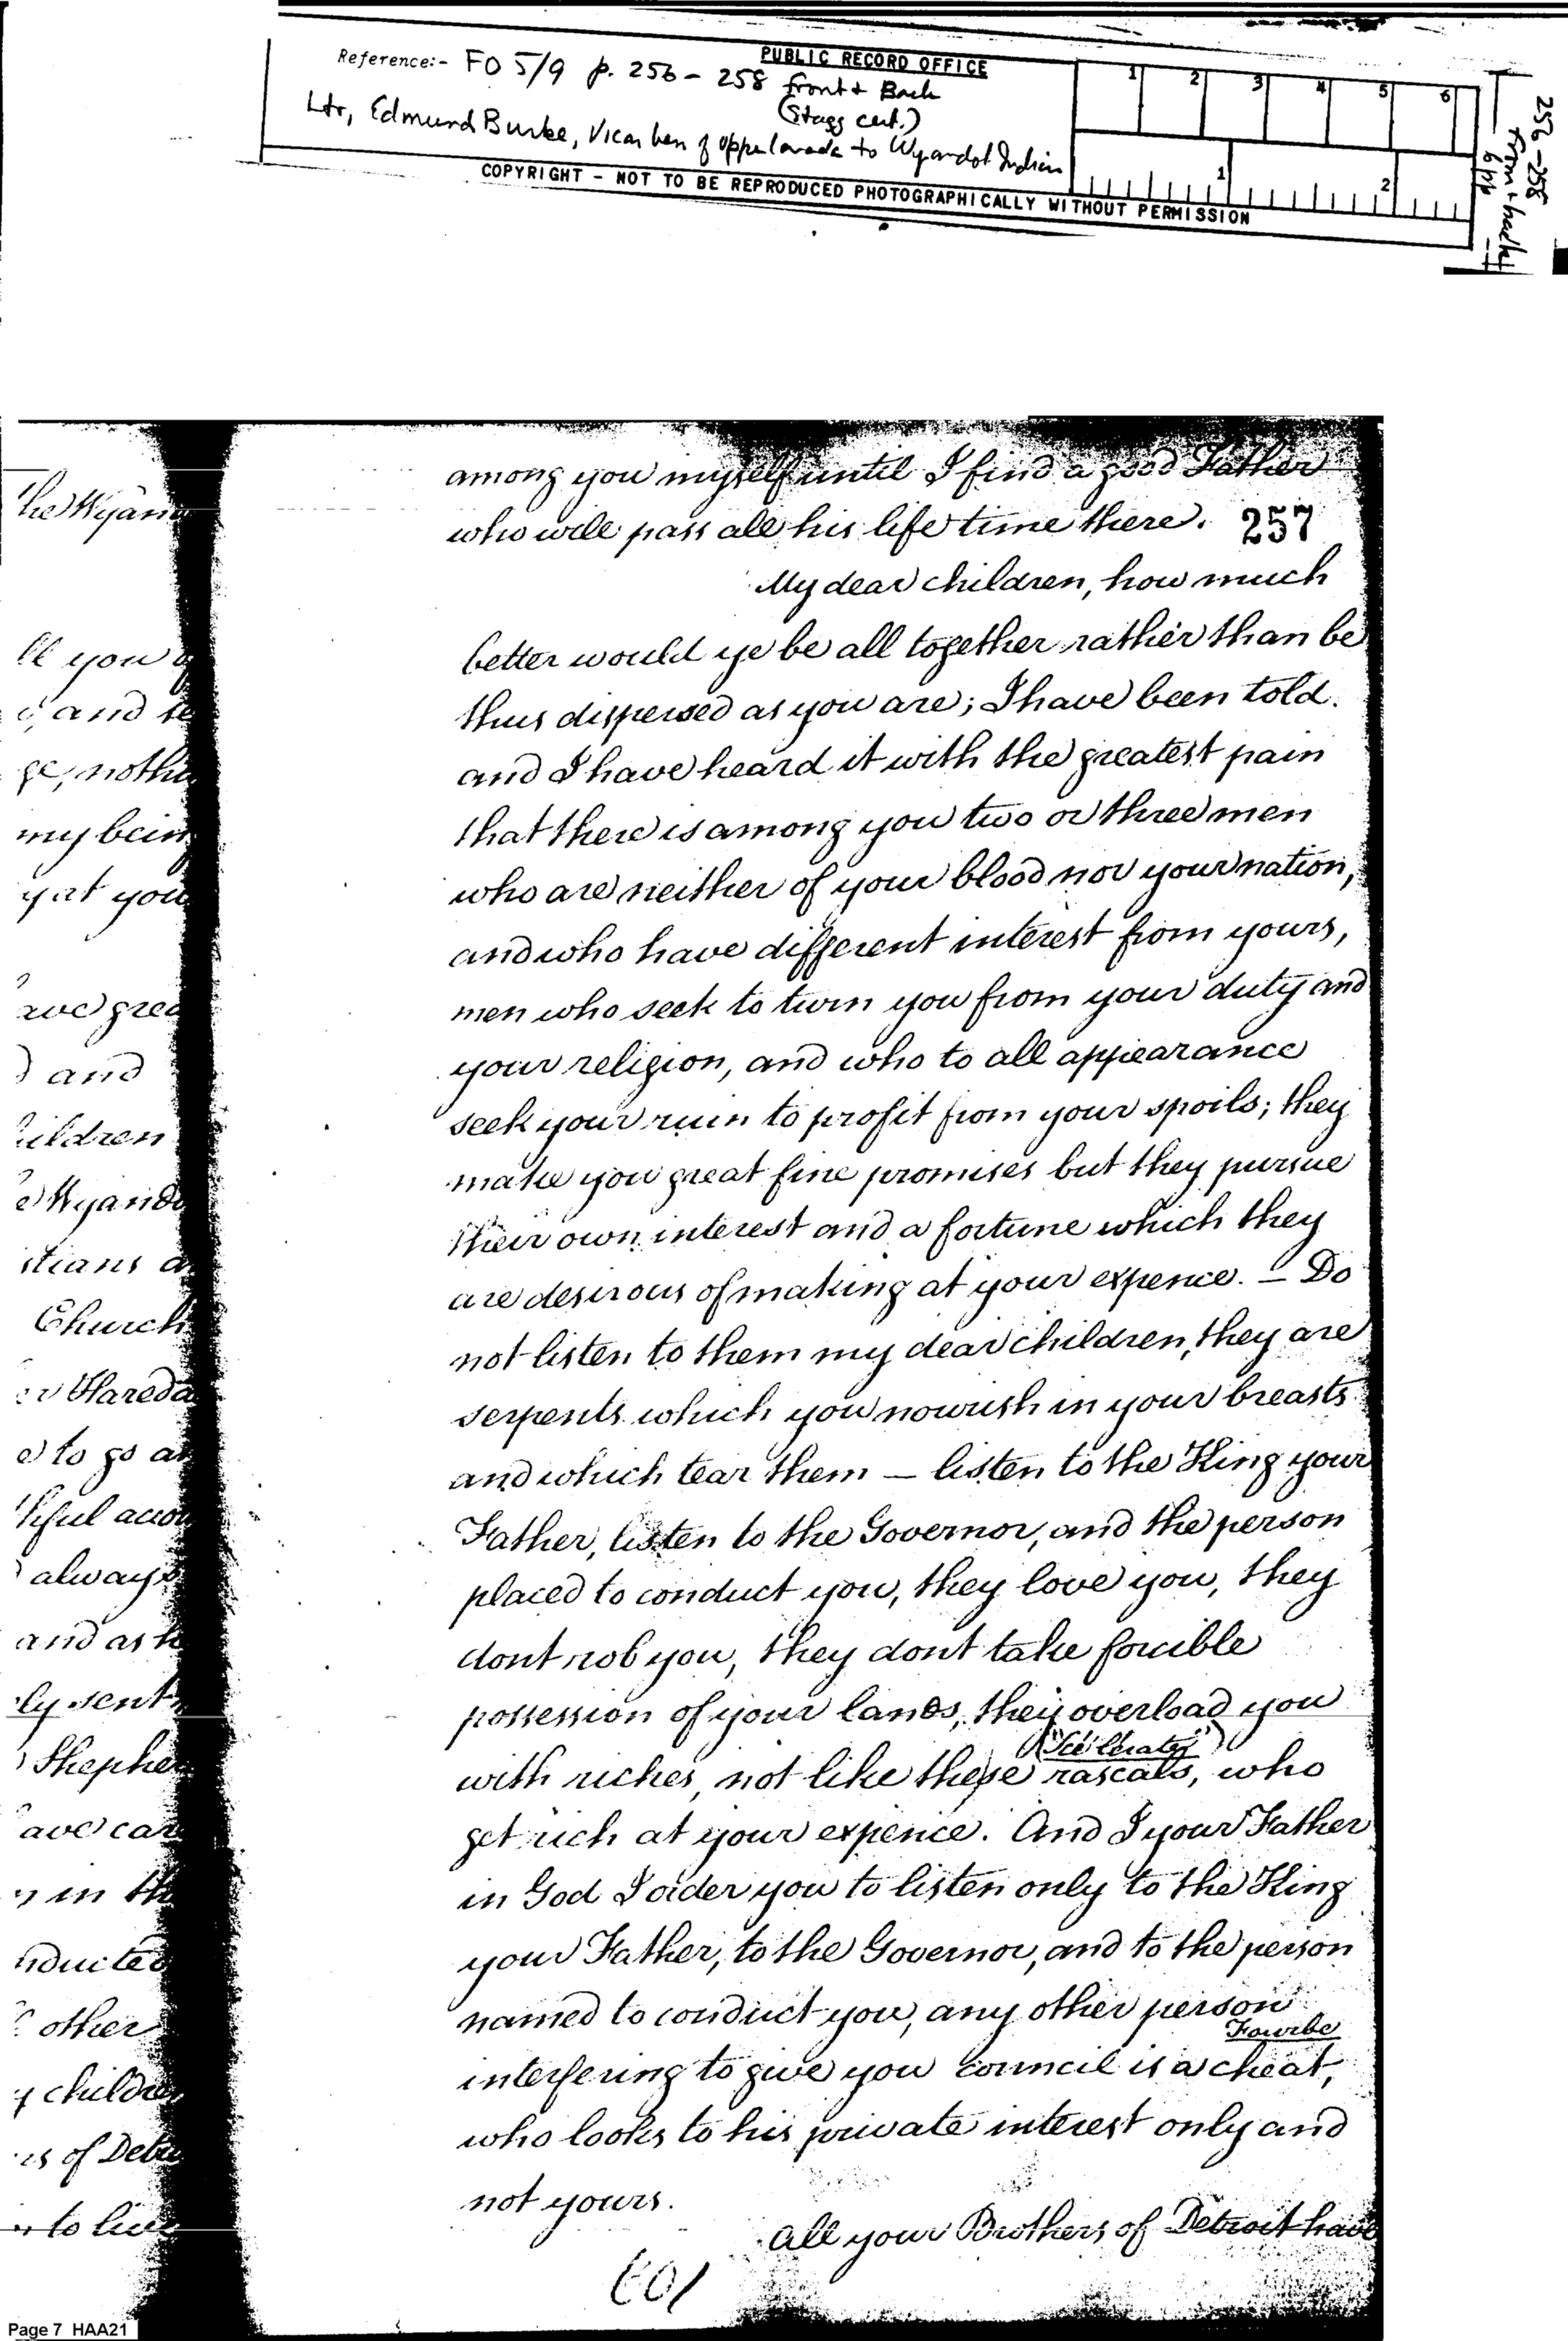 PUBLIC RECORD OFFICE
Reference:- FO 5/9 p. 256 - 258 front & Back
(Stagg cert.)
Ltr, Edmund Burke, Vicar Gen of Upper Canada to Wyandot Indian
COPYRIGHT - NOT TO BE REPRODUCED PHOTOGRAPHICALLY WITHOUT PERMISSION
1 2 3 4 5 6
1 2
256-258
front & back
among you myself until I find a good Father
who will pass all his life time there. 257
My dear children, how much
better would ye be all together rather than be
thus dispersed as you are; I have been told.
and I have heard it with the greatest pain
that there is among you two or three men
who are neither of your blood nor your nation,
and who have different interest from yours,
men who seek to turn you from your duty and
your religion, and who to all appearance
seek your ruin to profit from your spoils; they
make you great fine promises but they pursue
their own interest and a fortune which they
are desirous of making at your expence. – Do
not listen to them my dear children, they are
serpents which you nourish in your breasts
and which tear them – listen to the King your
Father, listen to the Governor, and the person
placed to conduct you, they love you, they
dont rob you, they dont take forcible
possession of your lands, they overload you
("Scélérates")
with riches, not like these rascals, who
get rich at your expence. And I your Father
in God I order you to listen only to the King
your Father, to the Governor, and to the person
named to conduct you, any other person
Fourbe
interfering to give you council is a cheat,
who looks to his private interest only and
not yours.
All your Brothers of Detroit have
the Wyan
ll you
and
ge, nothi
my bein
yet you
ave grea
and
hildren
e Wyando
stians a
Church
e) to go a
thful acco
always
and as
ly sent
Shephe
ave car
in th
nducted
other
y childre
es of Det
to live
Page 7 HAA21